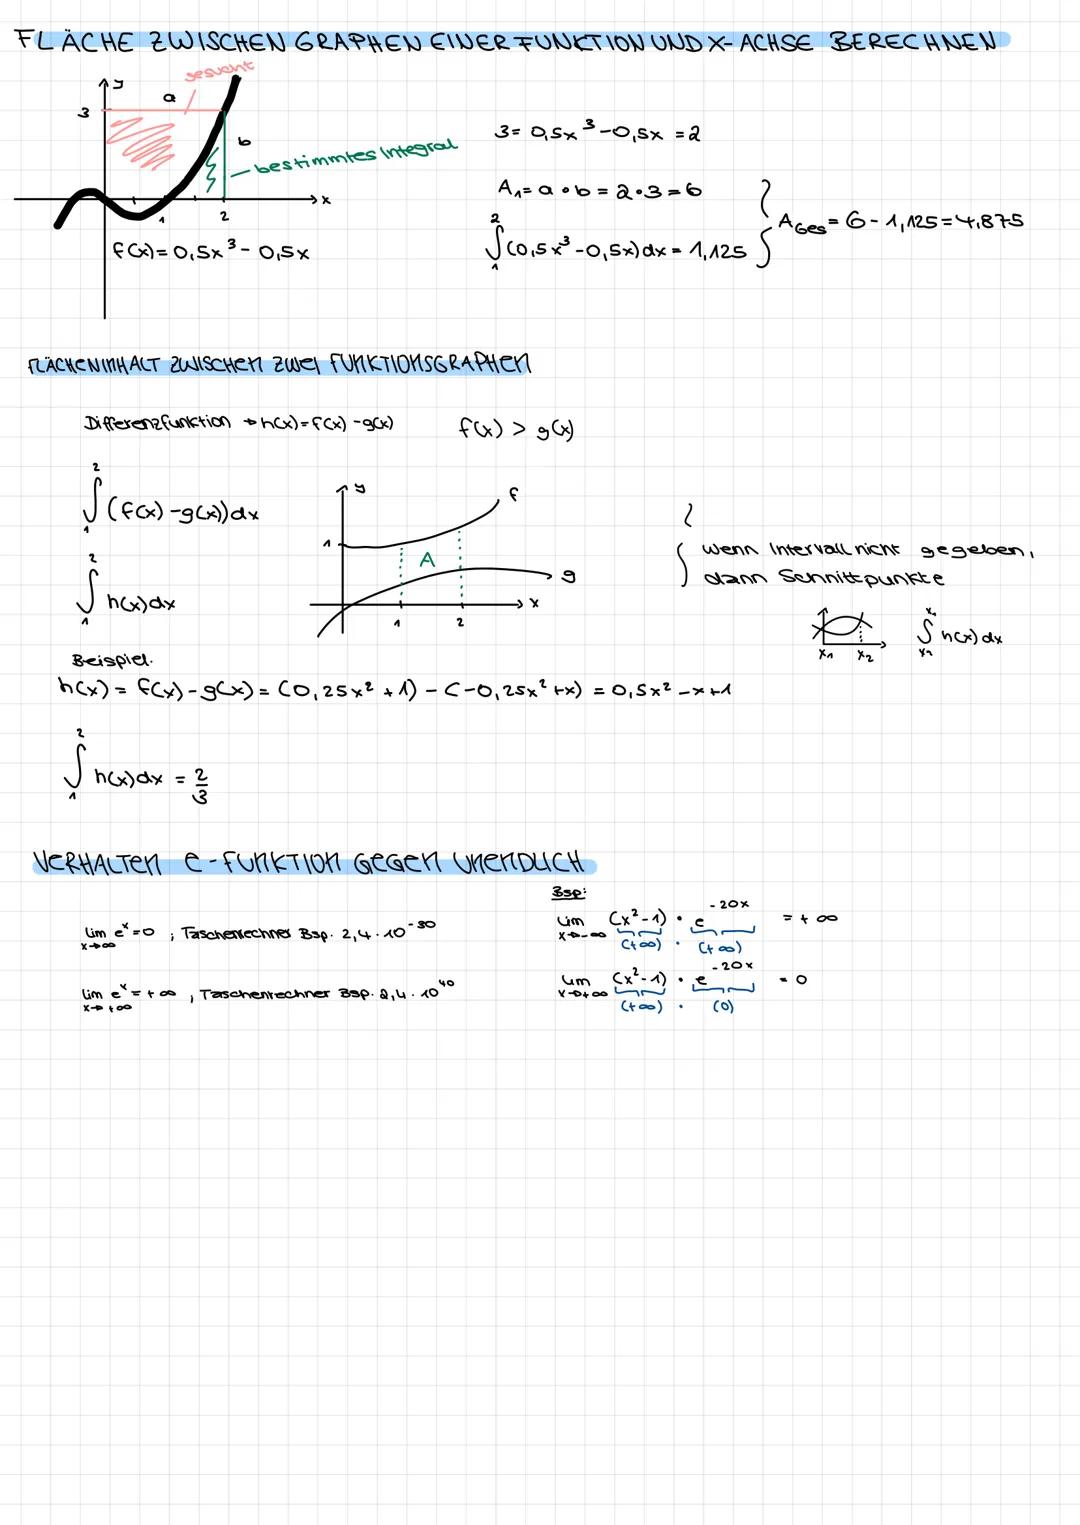 FLÄCHE ZWISCHEN GRAPHEN EINER FUNKTION UND X-ACHSE BERECHNEN
gesucht
y
a
3
b
bestimmtes Integral
x
1
2
f(x) = 0,5x³ - 0,5x
3 = 0,5x³ - 0,5x = 2
A₁ = a • b = 2 • 3 = 6
∫₁² (0,5x³ - 0,5x) dx = 1,125
A Ges = 6 - 1,125 = 4,875
FLÄCHENINHALT ZWISCHEN ZWEI FUNKTIONSGRAPHEN
Differenzfunktion → h(x) = f(x) - g(x)
f(x) > g(x)
∫₁² (f(x) - g(x)) dx
∫₁² h(x) dx
y
f
1
A
g
x
1
2
wenn Intervall nicht gegeben,
dann Schnittpunkte
x₁ x₂
h(x) dx
Beispiel:
h(x) = f(x) - g(x) = (0,25x² + 1) - (-0,25x² + x) = 0,5x² - x + 1
∫₁² h(x) dx = 2/3
VERHALTEN e-FUNKTION GEGEN UNENDLICH
lim x→∞ eˣ = 0 ; Taschenrechner Bsp. 2,4 · 10⁻³⁰
lim x→+∞ eˣ = +∞ , Taschenrechner Bsp. 2,4 · 10⁴⁰
Bsp:
lim x→-∞ (x² - 1) • e^-20x = +∞
(+∞) · (+∞)
lim x→+∞ (x² - 1) • e^-20x = 0
(+∞) · (0)